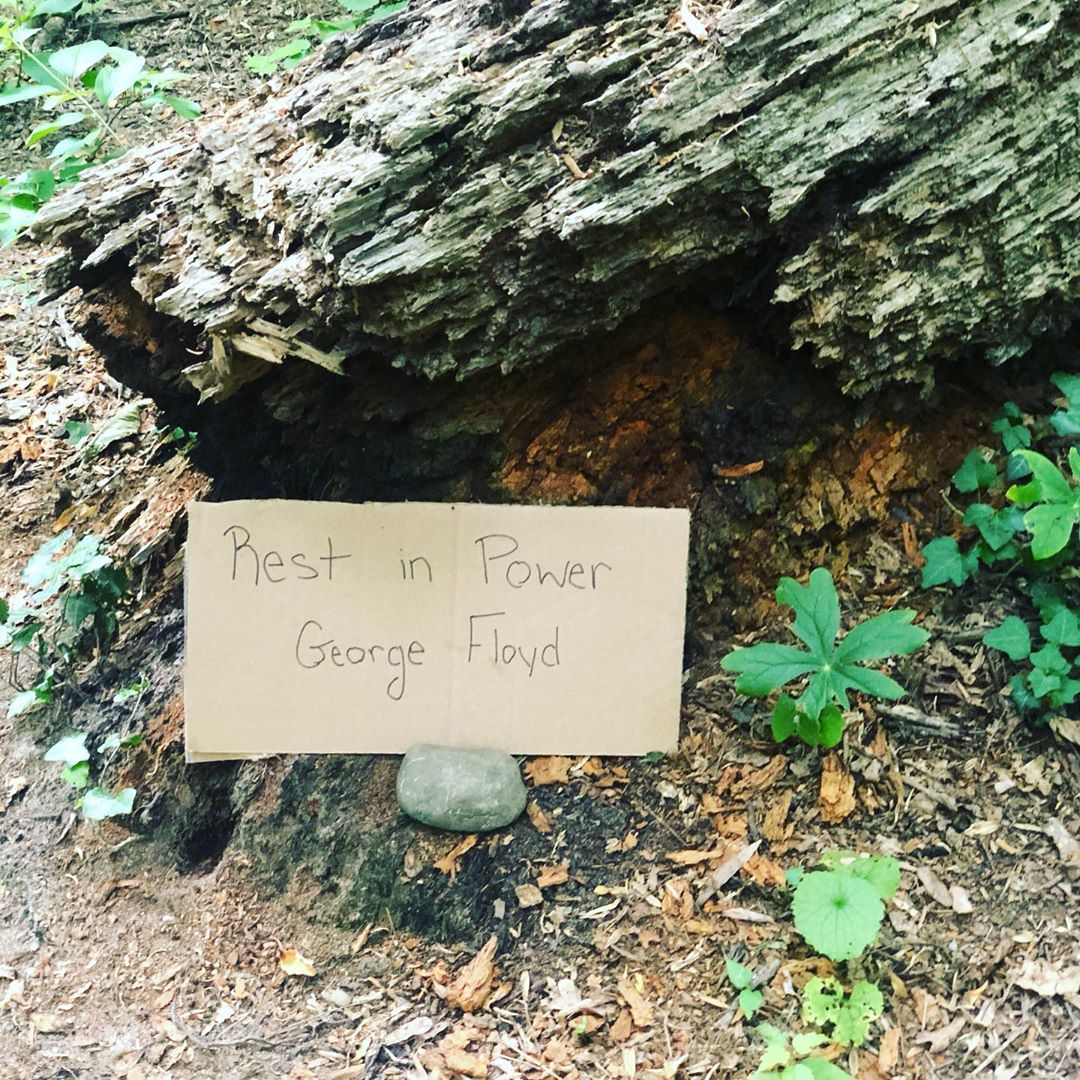 Rest in Power
George Floyd